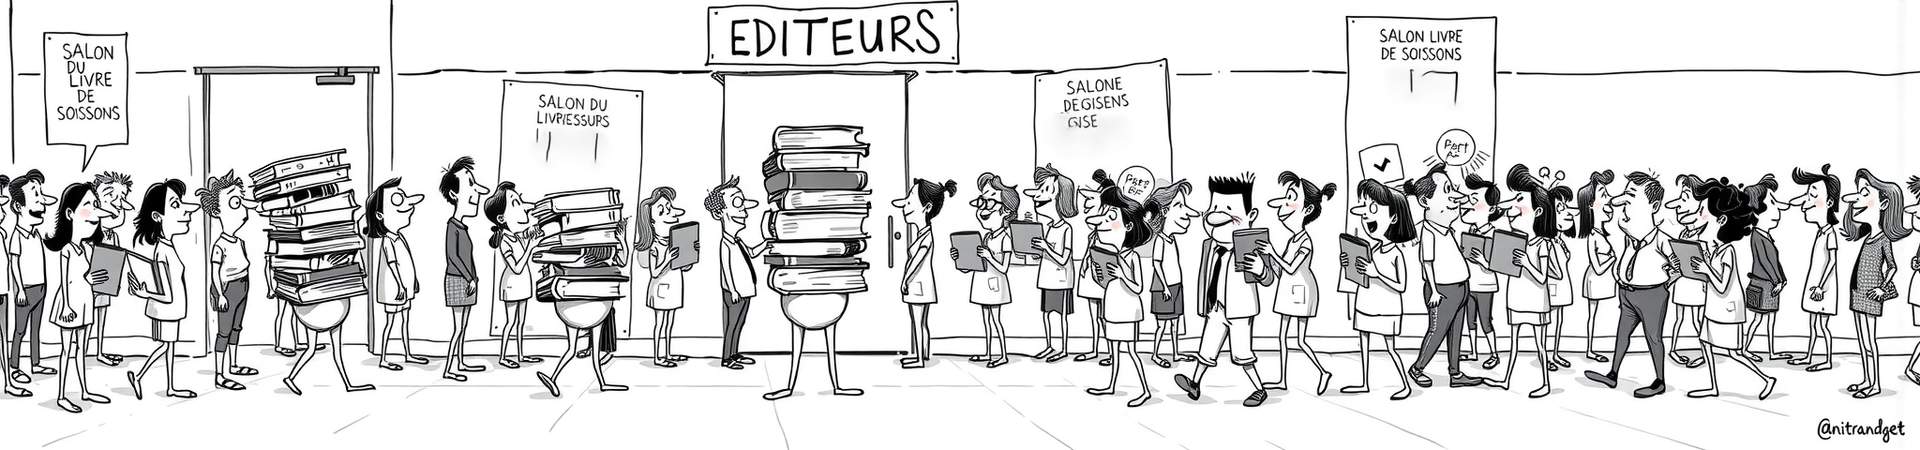 SALON
DU
LIVRE
DE
SOISSONS
SALON DU
EDITEURS
SALONE
DEGISENS
GISE
SALON LIVRE
DE SOISSONS
@nitrandget